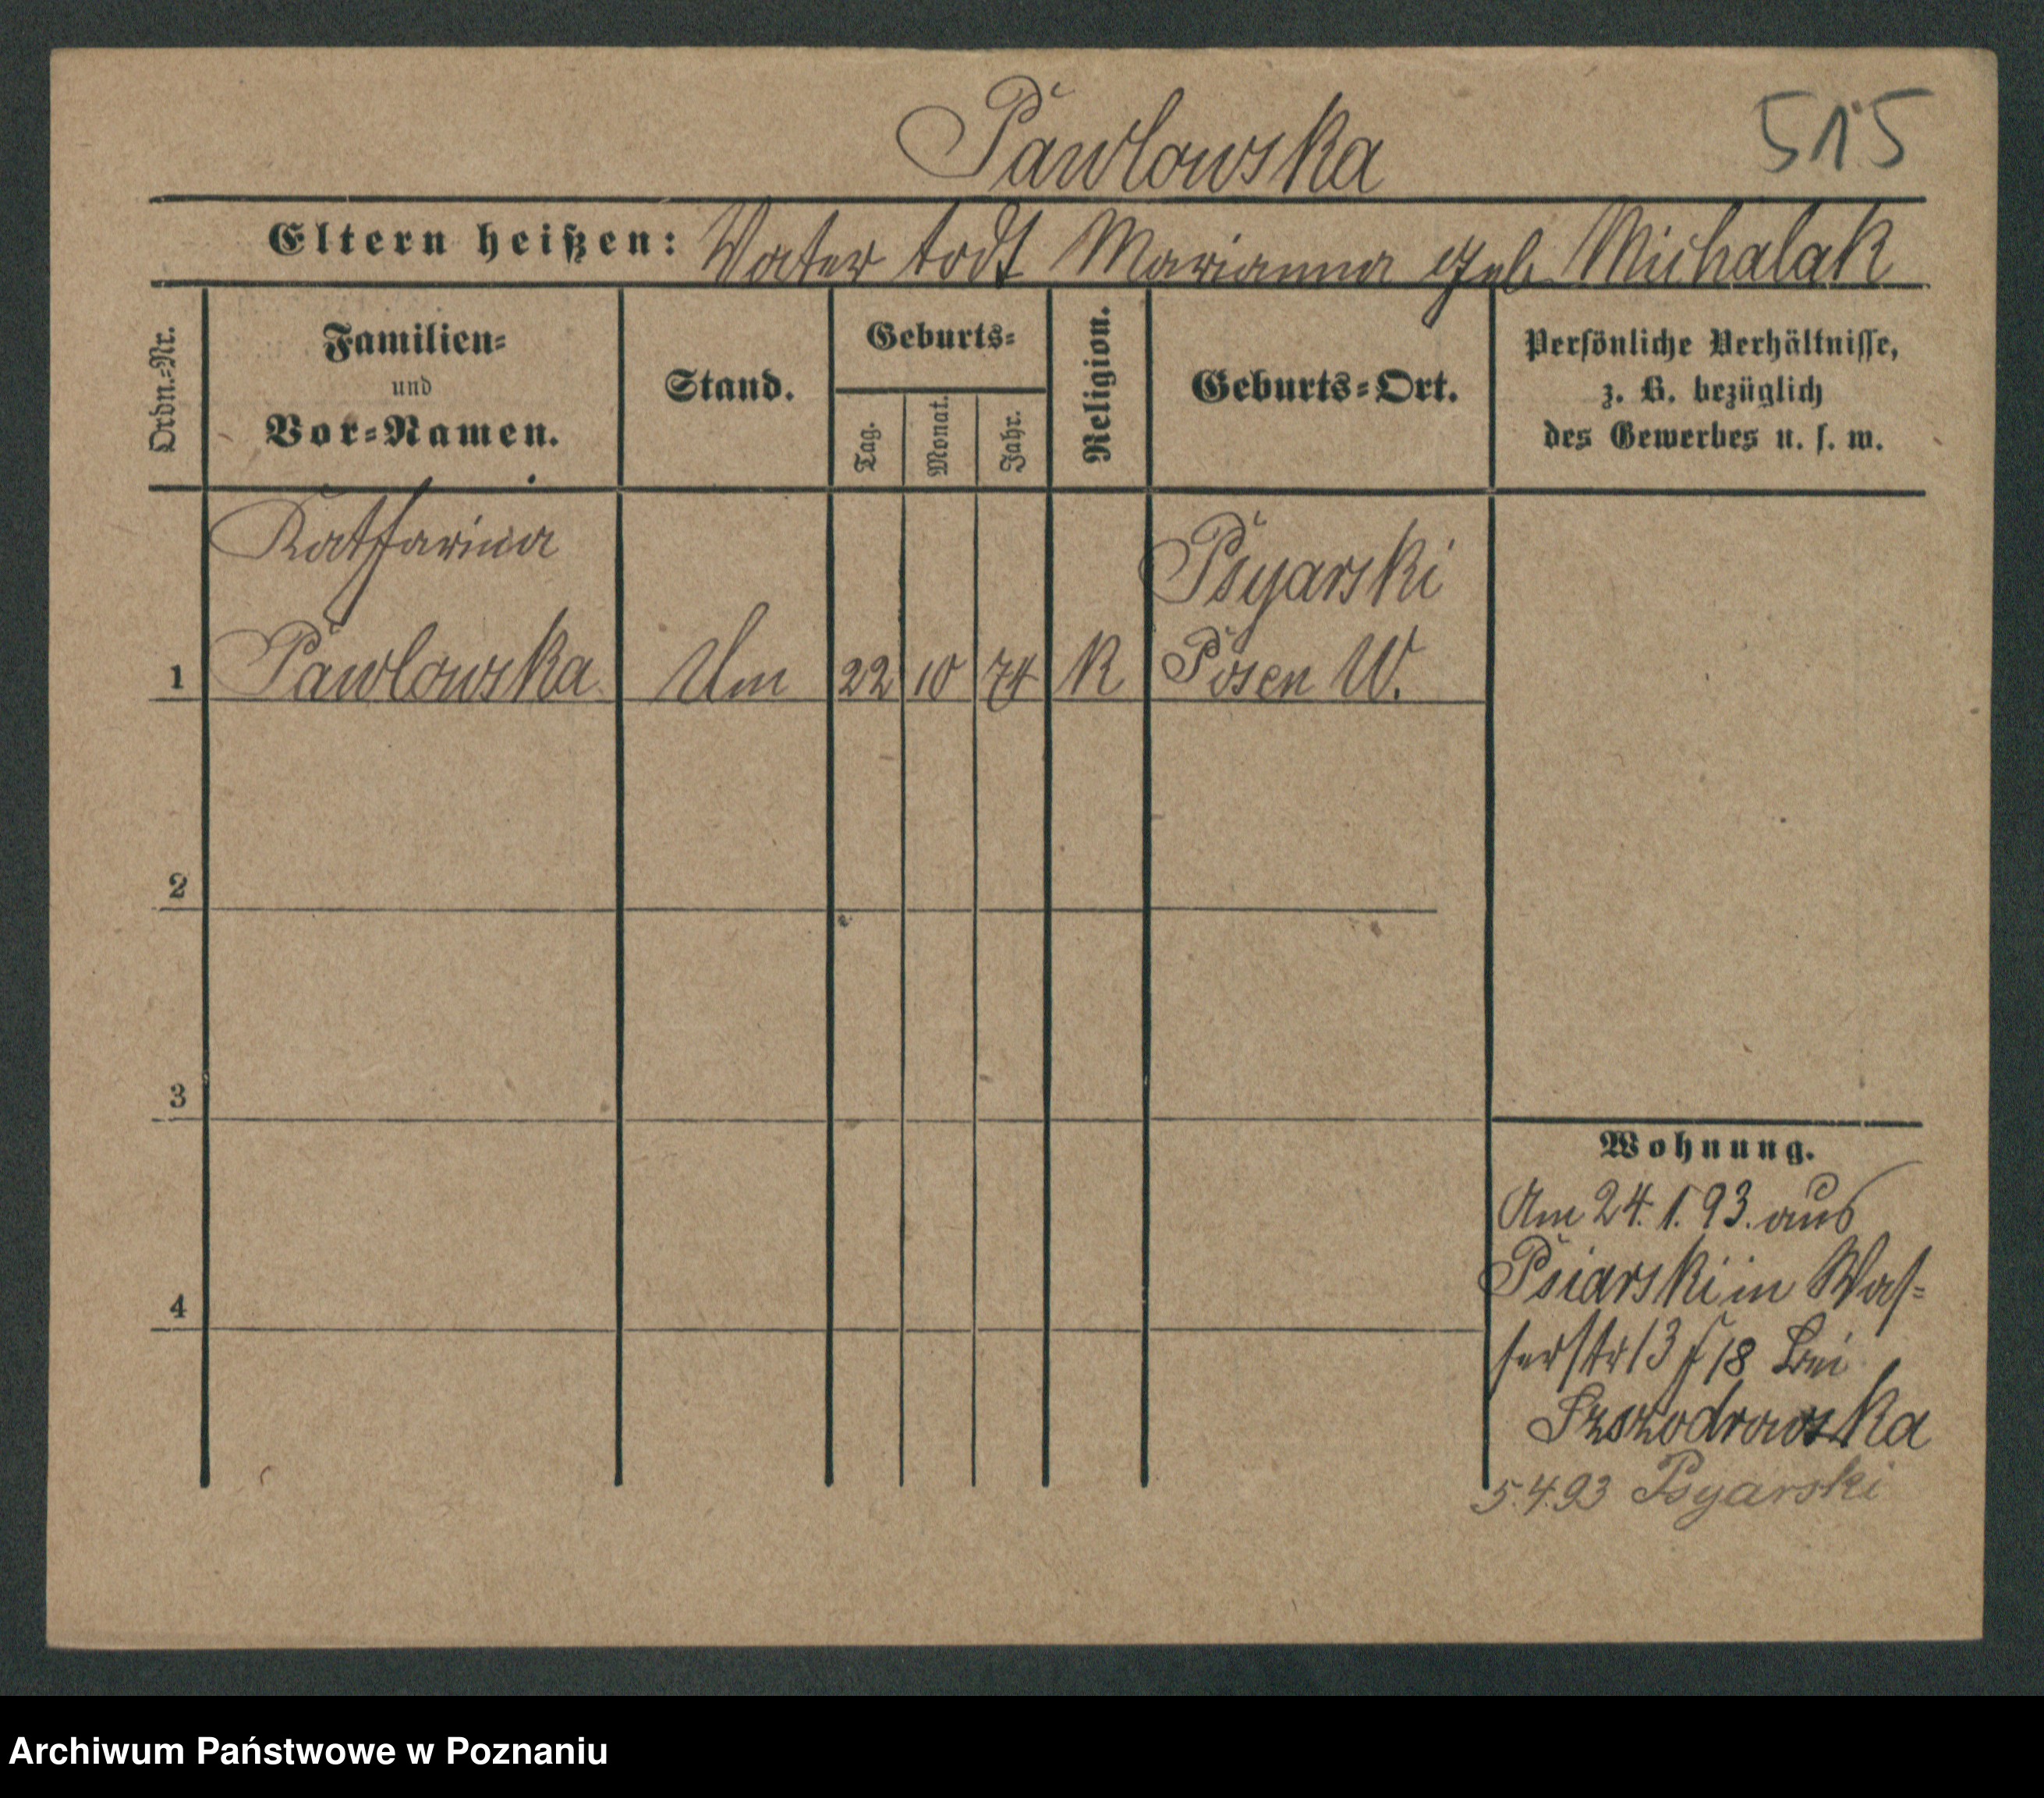 Pawlowska 515
Eltern heißen: Vater todt Marianna geb Michalak
Ordn.-Nr.
Familien-
und
Vor-Namen.
Stand.
Geburts-
Tag.
Monat.
Jahr.
Religion.
Geburts-Ort.
Persönliche Verhältnisse,
z. B. bezüglich
des Gewerbes u. s. w.
Katharina
Psyarski
1 Pawlowska Um 22 10 74 K Posen W.
2
3
4
Wohnung.
Am 24. 1. 93. aus
Psiarski in Was-
serstr 13 18 bei
Szszodrowska
5.4.93 Psyarski
Archiwum Państwowe w Poznaniu